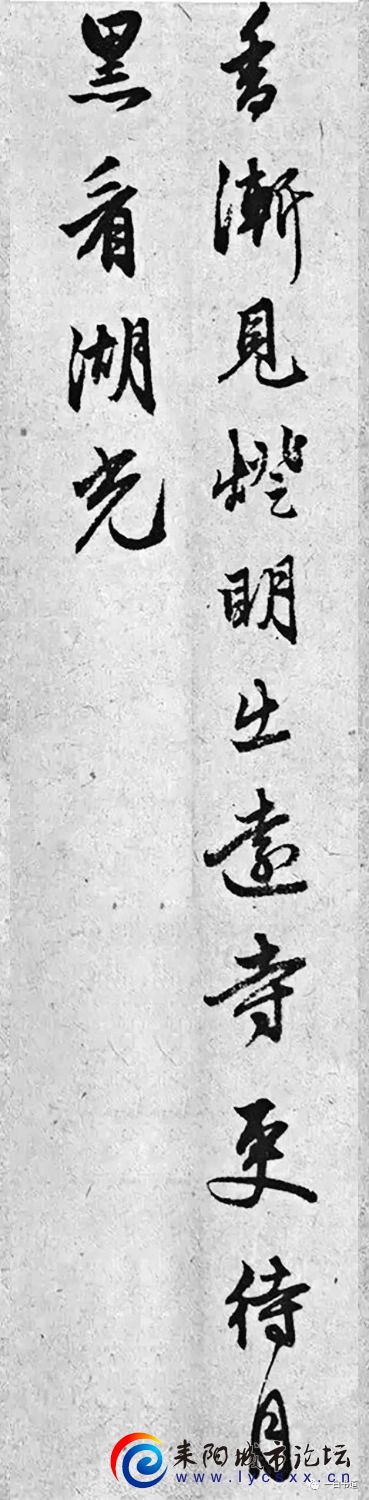 香漸見燈明出遠寺更待月
黑看湖光
耒阳城市论坛
www.lysxx.cn
一日书馆